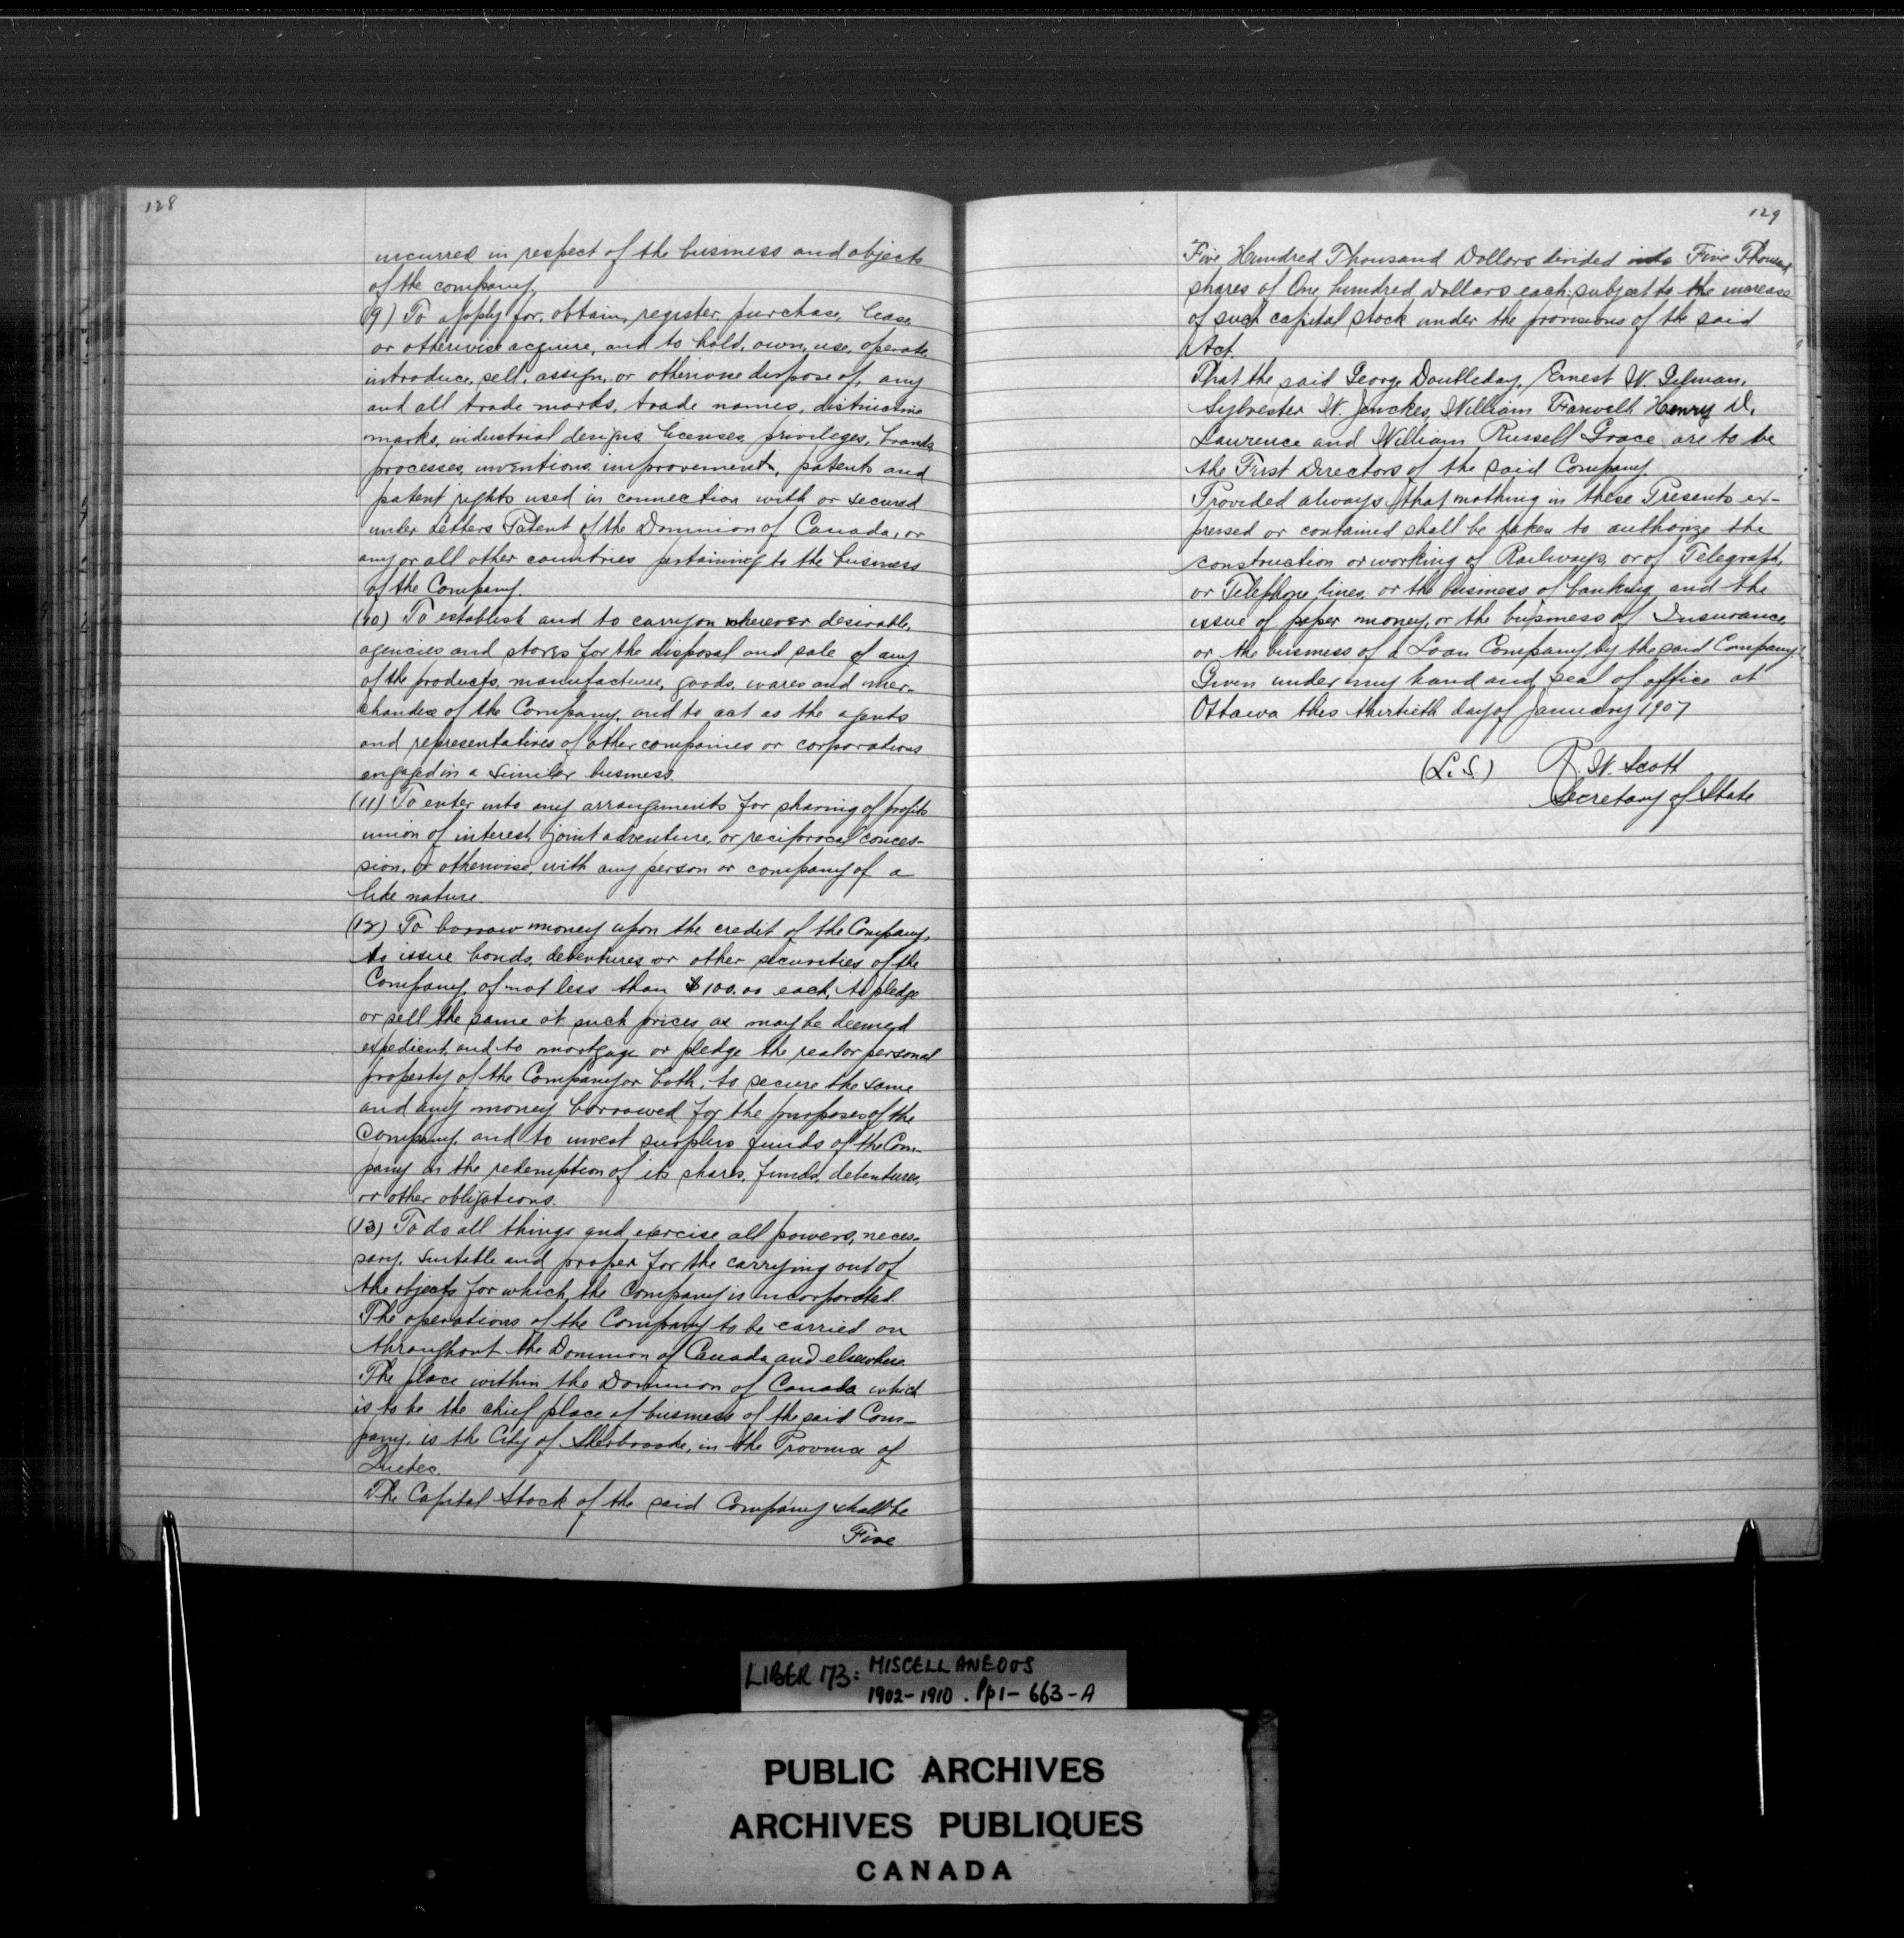 128
incurred in respect of the business and objects
of the company.
(9) To apply for, obtain, register, purchase, lease,
or otherwise acquire, and to hold, own, use, operate,
introduce, sell, assign, or otherwise dispose of, any
and all trade marks, trade names, distinctive
marks, industrial designs, licenses, privileges, brands,
processes, inventions, improvements, patents and
patent rights used in connection with or secured
under Letters Patent of the Dominion of Canada, or
any or all other countries pertaining to the business
of the Company.
(10) To establish and to carry on wherever desirable,
agencies and stores for the disposal and sale of any
of the products, manufactures, goods, wares and mer-
chandise of the Company, and to act as the agents
and representatives of other companies or corporations
engaged in a similar business.
(11) To enter into any arrangements for sharing of profits
union of interest, joint adventure, or reciprocal conces-
sion, or otherwise, with any person or company of a
like nature.
(12) To borrow money upon the credit of the Company,
to issue bonds, debentures or other securities of the
Company, of not less than $100.00 each, to pledge
or sell the same at such prices as may be deemed
expedient, and to mortgage or pledge the real or personal
property of the Company or both, to secure the same
and any money borrowed for the purposes of the
Company, and to invest surplus funds of the Com-
pany in the redemption of its shares, funds, debentures,
or other obligations.
(13) To do all things and exercise all powers, neces-
sary, suitable and proper for the carrying out of
the objects for which the Company is incorporated.
The operations of the Company to be carried on
throughout the Dominion of Canada and elsewhere.
The place within the Dominion of Canada which
is to be the chief place of business of the said Com-
pany, is the City of Sherbrooke, in the Province of
Quebec.
The Capital Stock of the said Company shall be
Five
129
Five Hundred Thousand Dollars divided into Five Thousand
shares of One hundred dollars each, subject to the increase
of such capital stock under the provisions of the said
Act.
That the said George Doubleday, Ernest W. Gilman,
Sylvester W. Jenckes, William Farwell, Henry D.
Lawrence and William Russell Grace are to be
the First Directors of the said Company.
Provided always that nothing in these Presents ex-
pressed or contained shall be taken to authorize the
construction or working of Railways, or of Telegraph,
or Telephone lines, or the business of banking and the
issue of paper money, or the business of Insurance,
or the business of a Loan Company by the said Company.
Given under my hand and seal of office at
Ottawa this thirtieth day of January 1907
(L.S.) R. W. Scott
Secretary of State
LIBER 173: MISCELLANEOUS
1902-1910. Pp1-663-A
PUBLIC ARCHIVES
ARCHIVES PUBLIQUES
CANADA